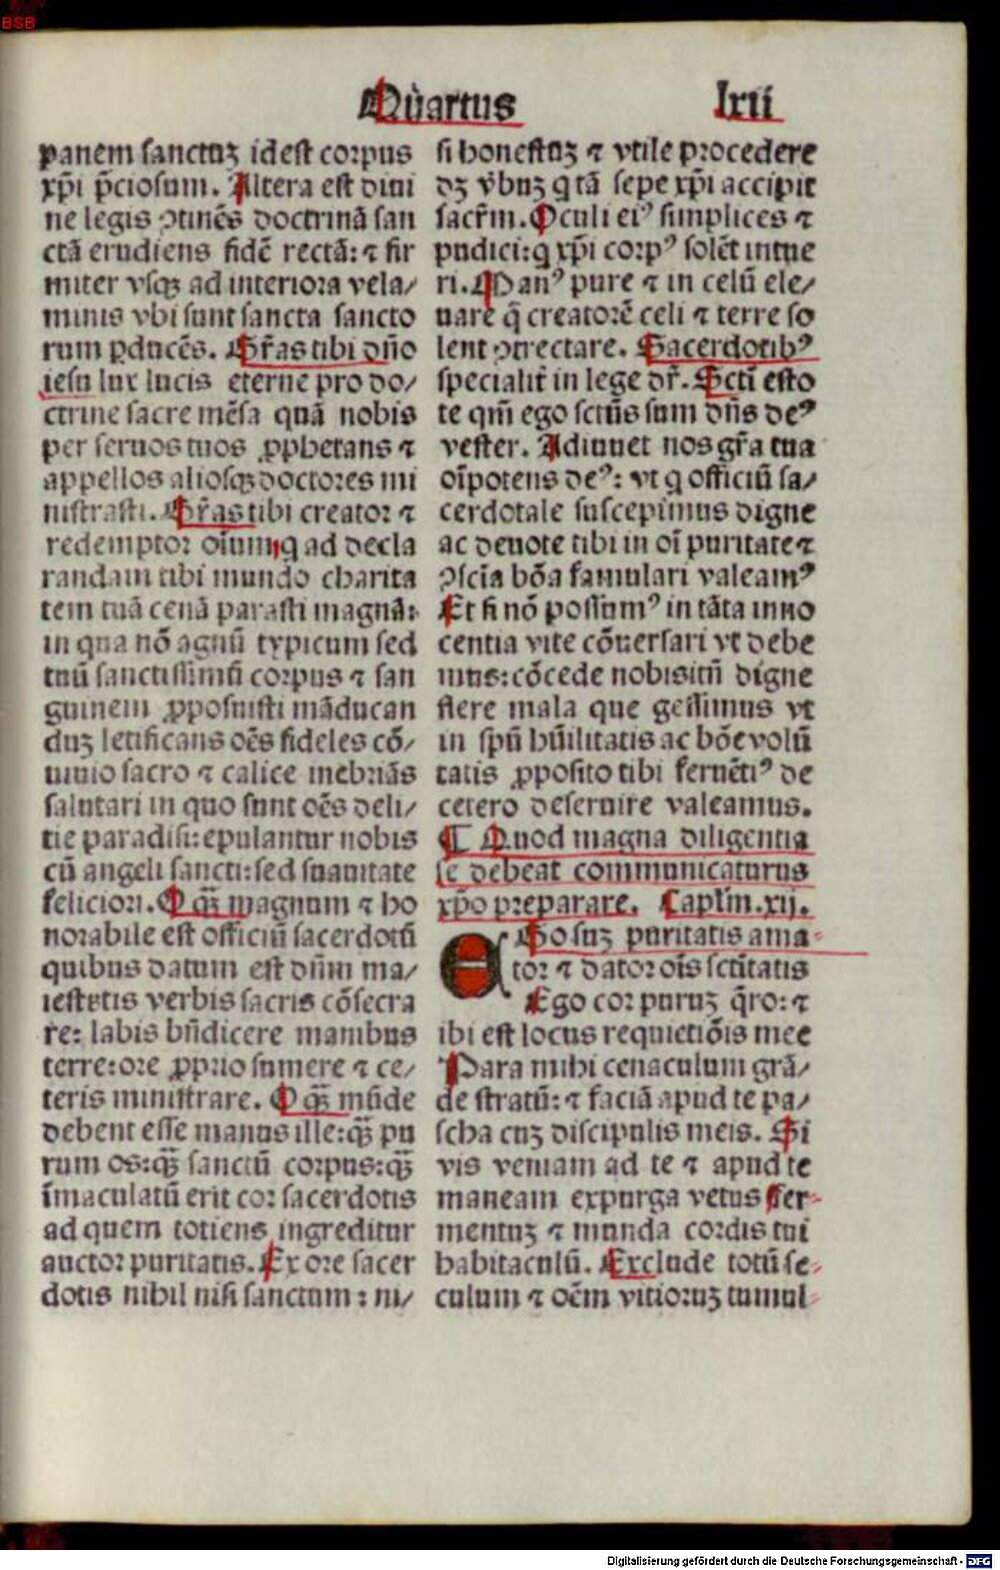 BSB
Quartus lxii
panem sanctuꝫ idest corpus
xp̄i p̄ciosum. Altera est diui
ne legis ꝯtinēs doctrinā san
ctā erudiens fidē rectā: ⁊ fir
miter vsqꝫ ad interiora vela/
minis vbi sunt sancta sancto
rum ꝑducēs. Gr̄as tibi dn̄o
iesu lux lucis eterne pro do/
ctrine sacre mēsa quā nobis
per seruos tuos ꝓphetans ⁊
appellos aliosqꝫ doctores mi
nistrasti. Gr̄as tibi creator ⁊
redemptor oīum q ad decla
randam tibi mundo charita
tem tuā cenā parasti magnā:
in qua nō agnū typicum sed
tuū sanctissimū corpus ⁊ san
guinem ꝓposuisti māducan
duꝫ letificans oēs fideles cō/
uiuio sacro ⁊ calice inebriās
salutari in quo sunt oēs deli/
tie paradisi: epulantur nobis
cū angeli sancti: sed suauitate
feliciori. O qꝫ̄ magnum ⁊ ho
norabile est officiū sacerdotū
quibus datum est dn̄m ma/
iestetis verbis sacris cōsecra
re: labis bn̄dicere manibus
terre: ore ꝓprio sumere ⁊ ce/
teris ministrare. O qꝫ̄ mūde
debent esse manus ille: qꝫ̄ pu
rum os: qꝫ̄ sanctū corpus: qꝫ̄
īmaculatū erit cor sacerdotis
ad quem totiens ingreditur
auctor puritatis. Ex ore sacer
dotis nihil nisi sanctum: ni/
si honestuꝫ ⁊ vtile procedere
dꝫ v̄buꝫ q tā sepe xp̄i accipit
sacr̄m. Oculi eiꝰ simplices ⁊
pudici: q xp̄i corpꝰ solēt intue
ri. Manꝰ pure ⁊ in celū ele/
uare q̄ creatorē celi ⁊ terre so
lent ꝯtrectare. Sacerdotibꝰ
specialit̄ in lege dr̄. Sctī esto
te qm̄ ego sctūs sum dn̄s deꝰ
vester. Adiuuet nos gr̄a tua
oīpotens deꝰ: vt q officiū sa/
cerdotale suscepimus digne
ac deuote tibi in oī puritate ⁊
ꝯsciā bōa famulari valeamꝰ
Et si nō possumꝰ in tāta inno
centia vite cōuersari vt debe
mus: cōcede nobisitū digne
flere mala que gessimus vt
in sp̄u hūilitatis ac bōe volū
tatis ꝓposito tibi feruētiꝰ de
cetero deseruire valeamus.
¶ Quod magna diligentia
se debeat communicaturus
xp̄o preparare. Caplm̄. xij.
EGo suꝫ puritatis ama
tor ⁊ dator oīs sctītatis
Ego cor puruꝫ q̄ro: ⁊
ibi est locus requietiōis mee
Para mihi cenaculum grā/
de stratū: ⁊ faciā apud te pa/
scha cuꝫ discipulis meis. Si
vis veniam ad te ⁊ apud te
maneam expurga vetus fer
mentuꝫ ⁊ munda cordis tui
habitaculū. Exclude totū se
culum ⁊ oēm vitioruꝫ tumul
Digitalisierung gefördert durch die Deutsche Forschungsgemeinschaft - DFG